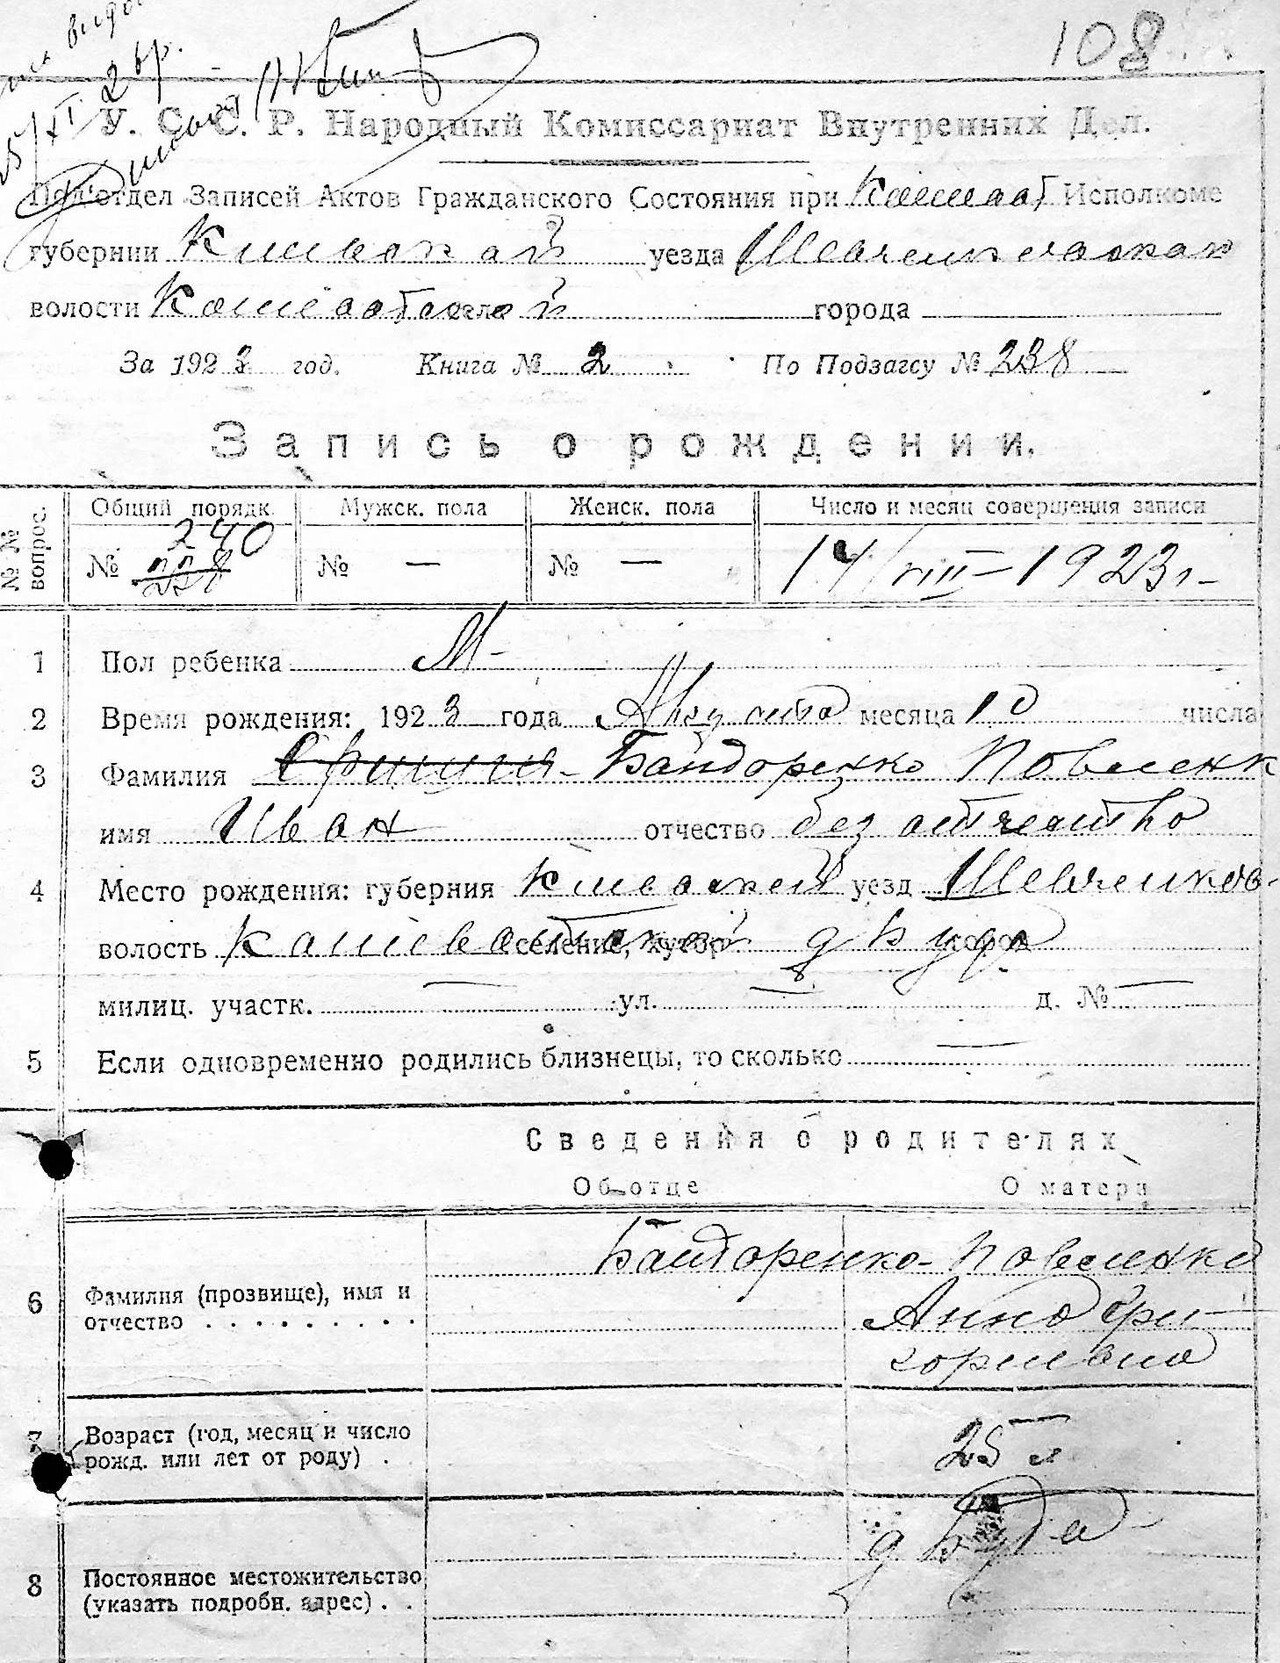 108
25/XI 2 вр.
У. С. С. Р. Народный Комиссариат Внутренних Дел.
Под'отдел Записей Актов Гражданского Состояния при Кашеват Исполкоме
губернии Киевской уезда Шевченковском
волости Кошеватской села города
За 1923 год. Книга № 2 По Подзагсу № 238
Запись о рождении.
№ № вопрос.
Общий порядк. Мужск. пола Женск. пола Число и месяц совершения записи
240
№ 228 № — № — 14/VIII – 1923 г.
1 Пол ребенка М
2 Время рождения: 1923 года Августа месяца 10 числа
3 Фамилия Бандоренко Поваленк
имя Иван отчество без отчество
4 Место рождения: губерния Киевской уезд Шевченков-
волость Кашеватской селение, хутор д Буда город
милиц. участк. — ул. — д. № —
5 Если одновременно родились близнецы, то сколько —
Сведения о родителях
Об отце О матери
Бандоренко-Поваленко
6 Фамилия (прозвище), имя и Анна Гри-
отчество . . . . . . . . . горивна
7 Возраст (год, месяц и число 25 л
рожд. или лет от роду) .
д Буда
8 Постоянное местожительство
(указать подробн. адрес) . .